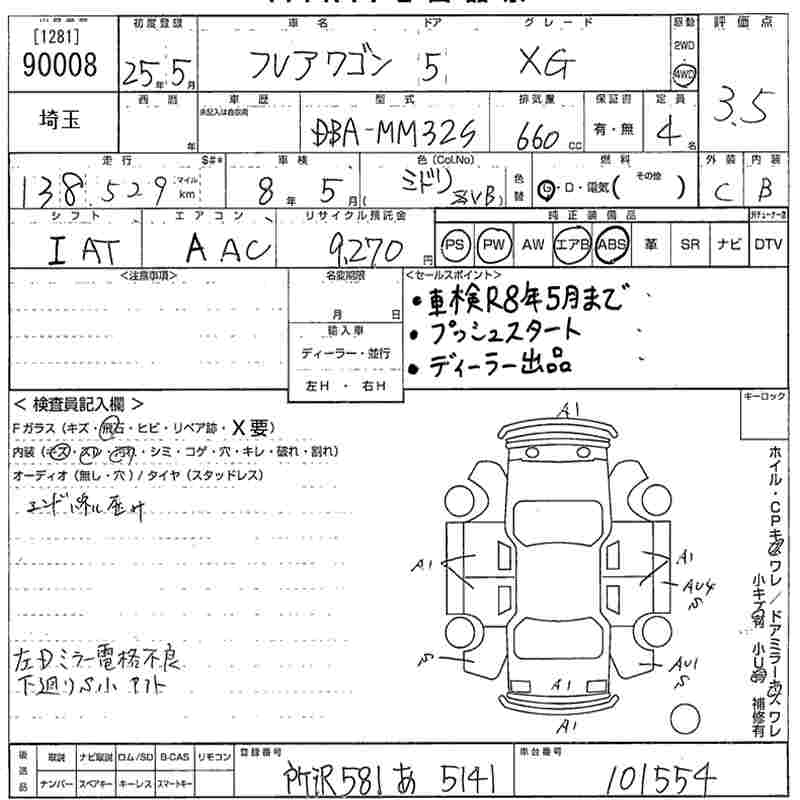 [1281]
90008
埼玉
初度登録
25年5月
西暦
年
車名
フレアワゴン
ドア
5
グレード
XG
駆動
2WD
4WD
評価点
3.5
車歴
未記入は自家用
型式
DBA-MM32S
排気量
660cc
保証書
有・無
定員
4名
走行
138,529
マイル
km
S#*
車検
8年5月
色(Col.No)
ミドリ
(ZVB)
色替
燃料
G・D・電気( その他 )
外装
C
内装
B
シフト
IAT
エアコン
AAC
リサイクル預託金
9,270円
純正装備品
PS PW AW エアB ABS 革 SR ナビ
DTV
<注意事項>
名変期限
月 日
輸入車
ディーラー・並行
左H ・ 右H
<セールスポイント>
・車検R8年5月まで
・プッシュスタート
・ディーラー出品
キーロック
< 検査員記入欄 >
Fガラス(キズ・飛石・ヒビ・リペア跡・X要)
内装(キズ・スレ・汚れ・シミ・コゲ・穴・キレ・破れ・割れ)
オーディオ(無し・穴)/タイヤ(スタッドレス)
エンドパネル歪ミ
左Dミラー電格不良
下廻りS小 アト
A1
A1
A1
AU4
S
S
AU1
S
A1
A1
ホイル・CPキズワレ/ドアミラーキズワレ
小キズ有 小U有 補修有
後送品
取説 ナビ取説 ロム/SD B-CAS リモコン
ナンバー スペアキー キーレス スマートキー
登録番号
所沢 581 あ 5141
車台番号
101554